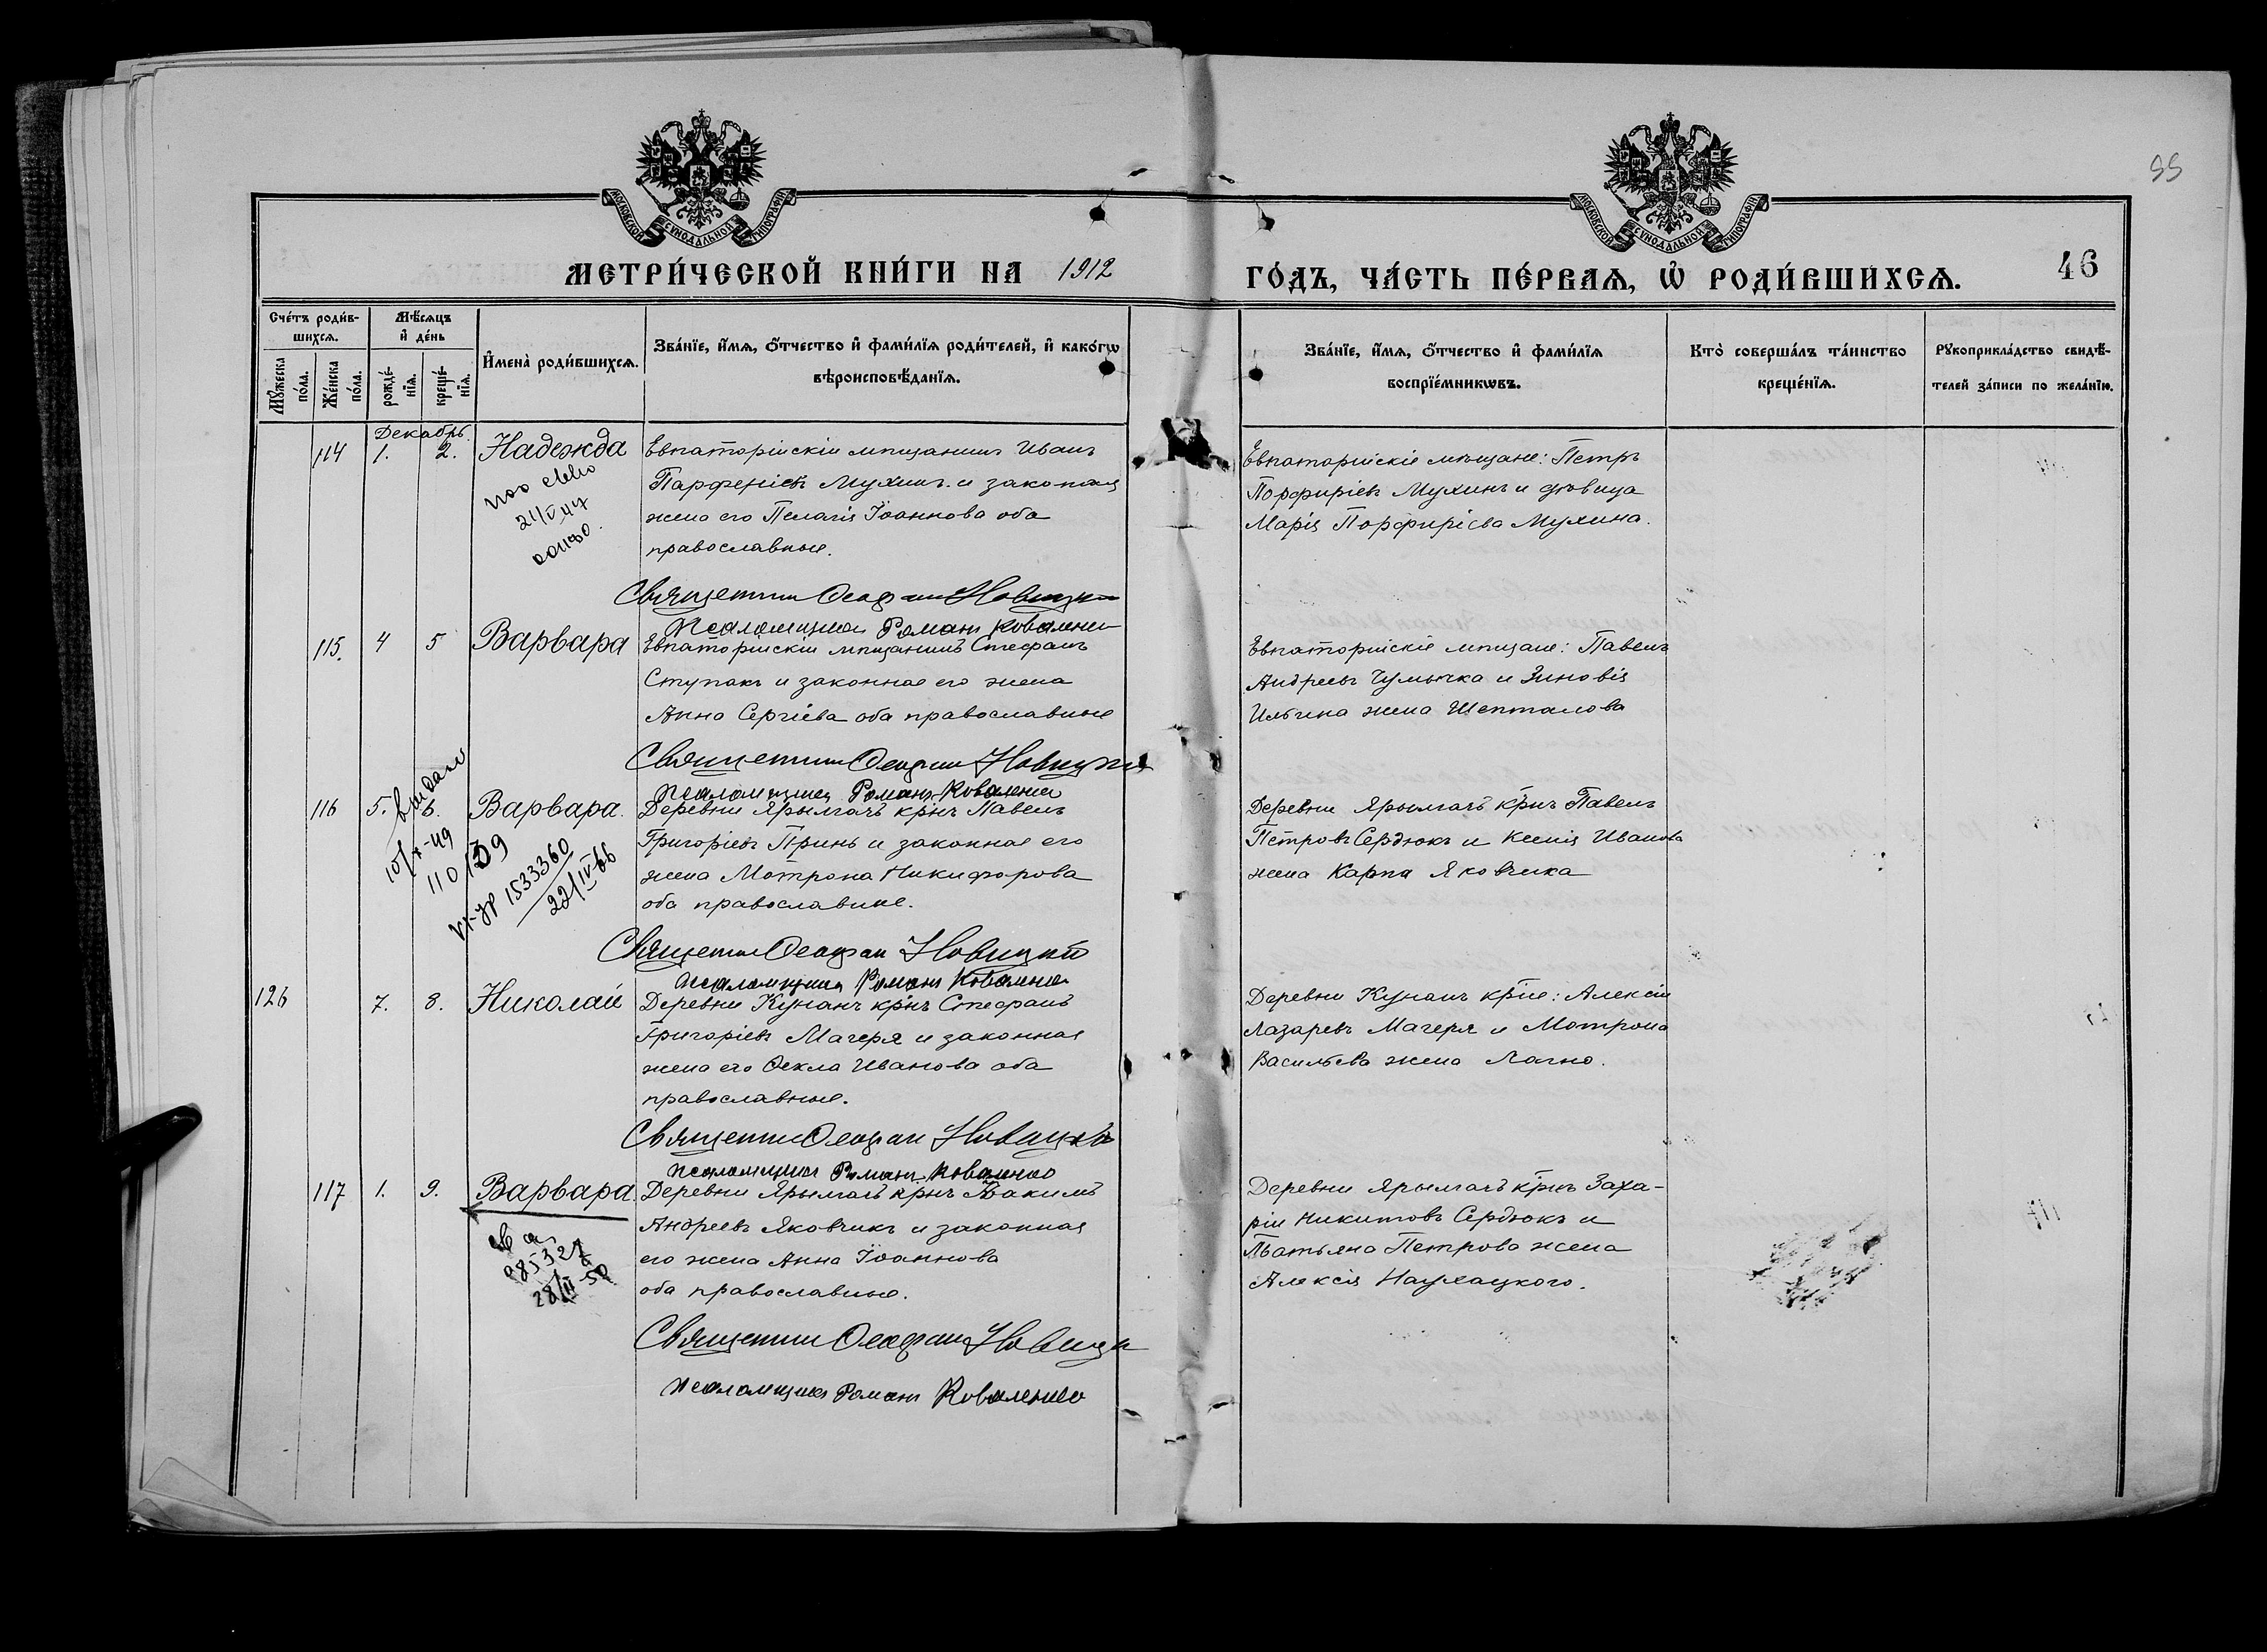 МОСКОВСКОЙ СУНОДАЛЬНОЙ ТИПОГРАФІИ
МОСКОВСКОЙ СУНОДАЛЬНОЙ ТИПОГРАФІИ
МЕТРИ́ЧЕСКОЙ КНИ́ГИ НА 1912
ГО́ДЪ, ЧА́СТЬ ПЕ́РВАЯ, Ѡ҆ РОДИ́ВШИХСЯ.
46
Сче́тъ роди́в-
шихся.
Мѣ́сяцъ
и҆ де́нь
Мꙋ́жеска по́ла.
Же́нска по́ла.
рожде́-
нїя.
креще́-
нїя.
И҆мена̀ роди́вшихся.
Зва́нїе, и҆́мя, ѻ҆́тчество и҆ фами́лїя роди́телей, и҆ како́гѡ
вѣроисповѣ́данїя.
Зва́нїе, и҆́мя, ѻ҆́тчество и҆ фами́лїя
воспрїе́мникѡвъ.
Кто̀ соверша́лъ та́инство
креще́нїя.
Рꙋкоприкла́дство свидѣ́-
телей за́писи по жела́нїю.
Декабрь.
114 1. 2. Надежда
Евпаторійскій мѣщанинъ Иванъ
Парфеніевъ Мухинъ и законная
жена его Пелагія Іоаннова оба
православные.
Евпаторійскіе мѣщане: Петръ
Порфиріевъ Мухинъ и дѣвица
Марія Порфиріева Мухина.
Священник Феофан Новицкий
Псаломщик Роман Коваленко
115. 4 5 Варвара
Евпаторійскій мѣщанинъ Стефанъ
Ступакъ и законная его жена
Анна Сергіева оба православные
Евпаторійскіе мѣщане: Павелъ
Андреевъ и Зиновія
Ильина жена Шепталова
Священник Феофан Новицкий
Псаломщик Роман Коваленко
116 5. 6. Варвара.
выдано
10/X-49
110/39
1533360
22/IV-66
Деревни Ярылгачъ кр̃нъ Павелъ
Григоріевъ Принь и законная его
жена Мотрона Никифорова
оба православные.
Деревни Ярылгачъ кр̃нъ Павелъ
Петровъ Сердюкъ и Ксенія Иванова
жена Карпа Яковчика
Священник Феофан Новицкий
Псаломщик Роман Коваленко
126 7. 8. Николай
Деревни Кунанъ кр̃нъ Стефанъ
Григоріевъ Магеря и законная
жена его Ѳекла Иванова оба
православные.
Деревни Кунанъ кр̃не: Алексій
Лазаревъ Магеря и Мотрона
Васильева жена Лагно.
Священник Феофан Новицкий
Псаломщик Роман Коваленко
117 1. 9. Варвара.
28/III-50
Деревни Ярылгачъ кр̃нъ Іоакимъ
Андреевъ Яковчикъ и законная
его жена Анна Іоаннова
оба православные.
Деревни Ярылгачъ кр̃нъ Заха-
рій Никитовъ Сердюкъ и
Татьяна Петрова жена
Алексія Наухацкого.
Священник Феофан Новицкий
Псаломщик Роман Коваленко